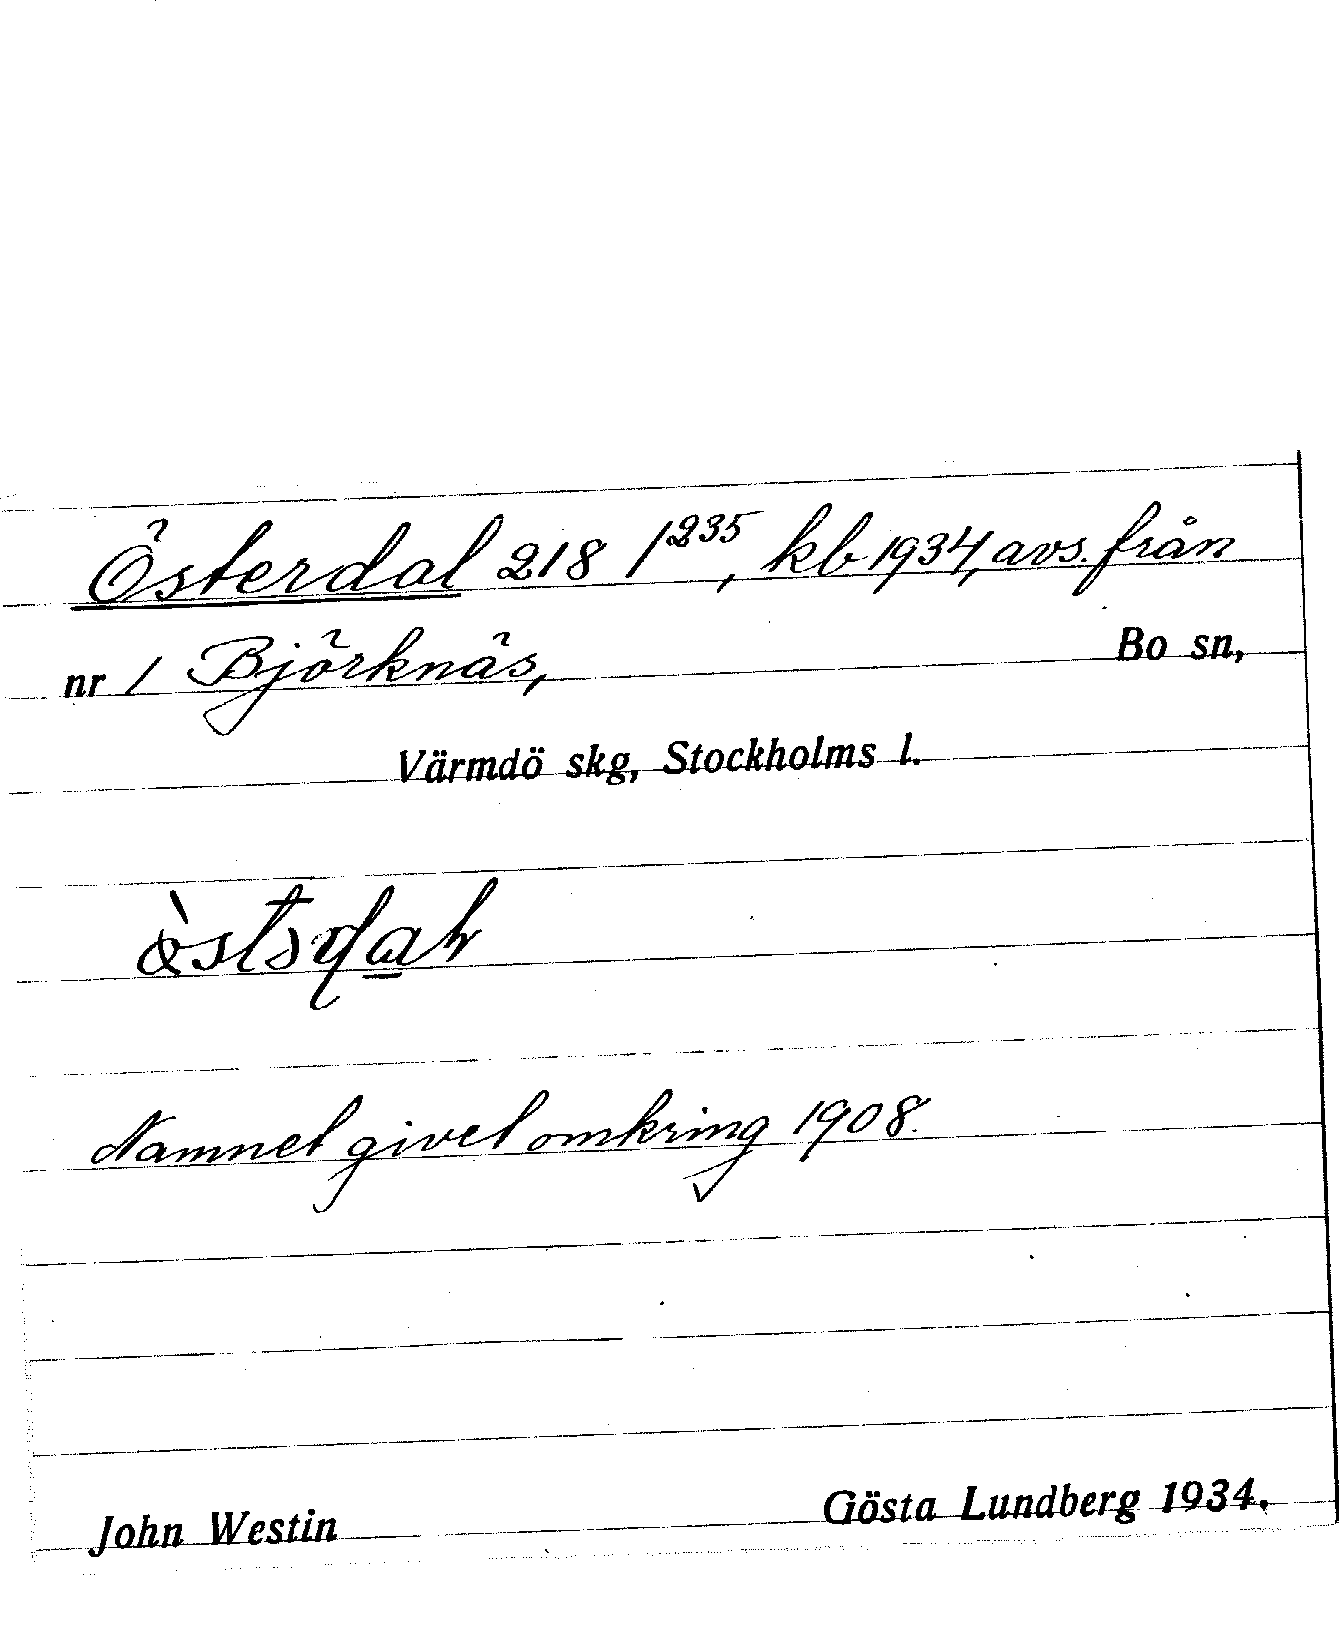 Österdal 218 1²³⁵, kb 1934, avs. från
nr 1 Björknäs, Bo sn,
Värmdö skg, Stockholms l.
Namnet givet omkring 1908.
John Westin Gösta Lundberg 1934.